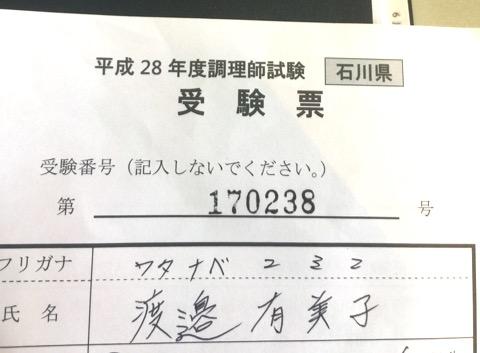 平成 28 年度調理師試験 石川県
受験票
受験番号（記入しないでください。）
第 170238 号
フリガナ ワタナベ ユミコ
氏 名 渡邉 有美子